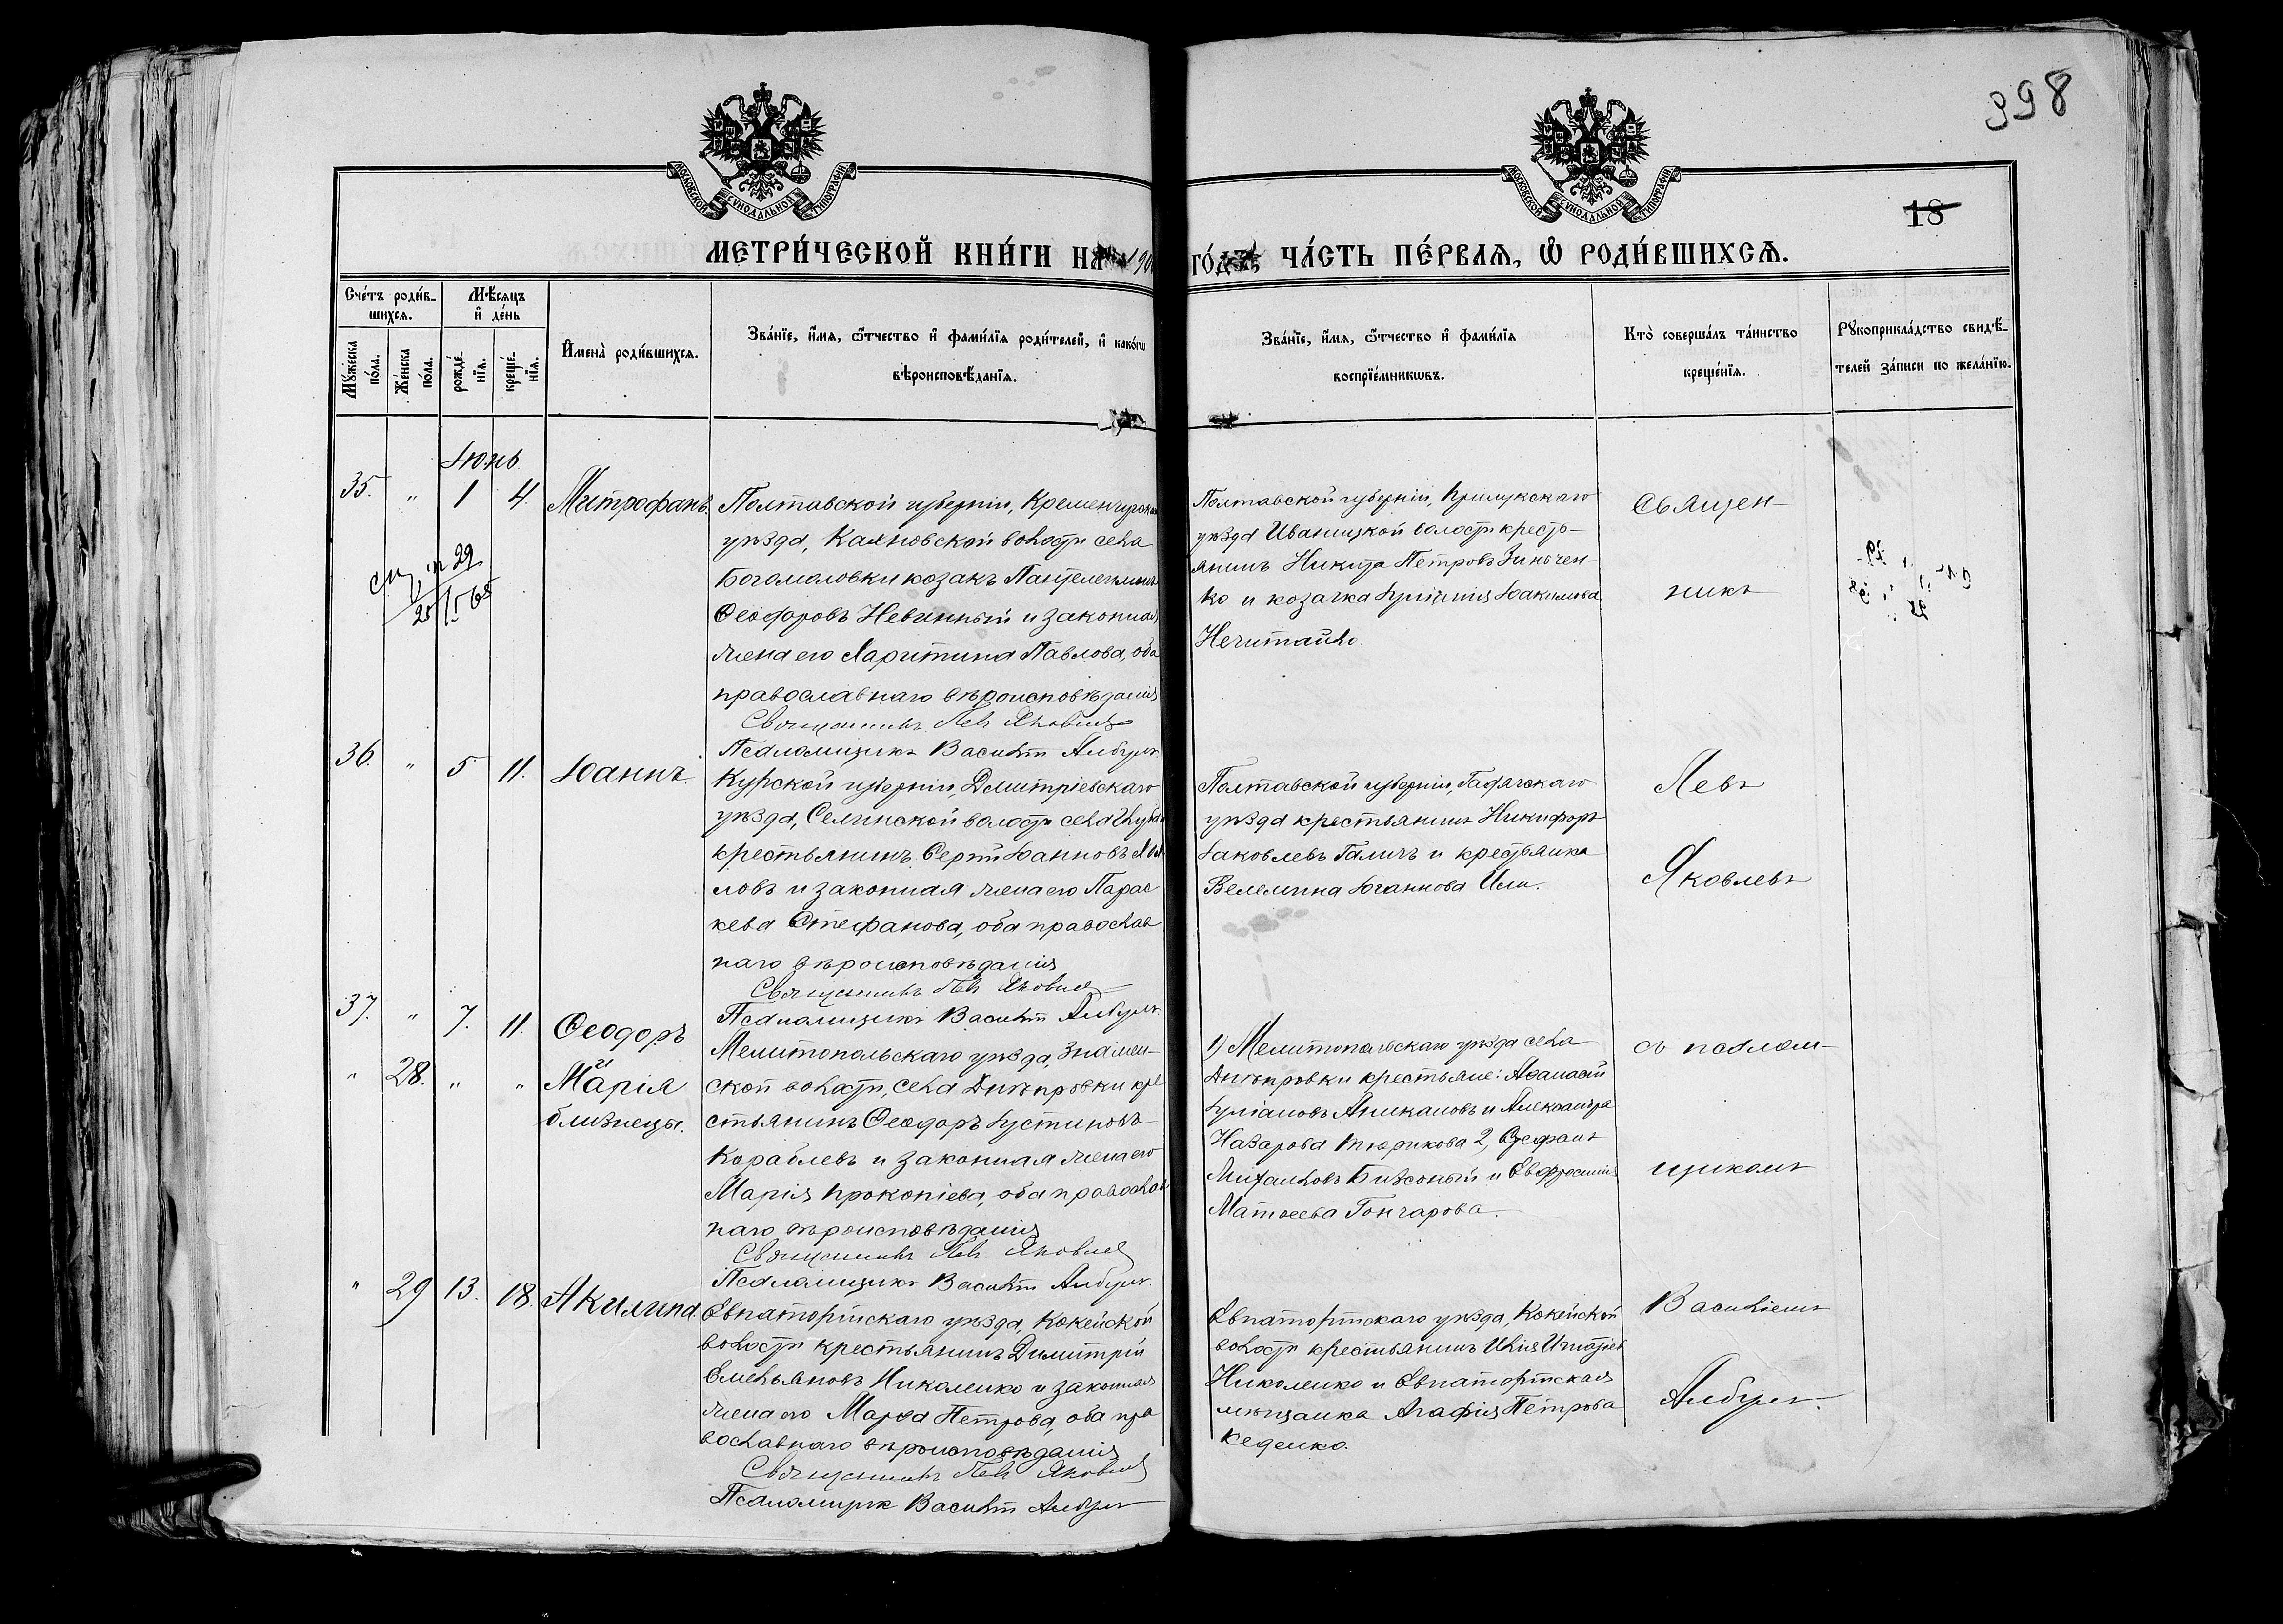 398
18
МОСКОВСКОЙ СѴНОДАЛЬНОЙ ТИПОГРАФІИ
МОСКОВСКОЙ СѴНОДАЛЬНОЙ ТИПОГРАФІИ
МЕТРИ́ЧЕСКОЙ КНИ́ГИ НА 190
ГО́ДЪ, ЧА́СТЬ ПЕ́РВАѦ, Ѡ҆ РОДИ́ВШИХСѦ.
Сче́тъ роди́в-
шихсѧ.
Мꙋ́жеска по́ла.
Же́нска по́ла.
Мѣ́сѧцъ
и҆ де́нь
рожде́-
нїѧ.
креще́-
нїѧ.
И҆мена̀ роди́вшихсѧ.
Зва́нїе, и҆́мѧ, ѻ҆́тчество и҆ фами́лїѧ роди́телей, и҆ како́гѡ
вѣроисповѣ́данїѧ.
Зва́нїе, и҆́мѧ, ѻ҆́тчество и҆ фами́лїѧ
воспрїе́мникѡвъ.
Кто̀ соверша́лъ та́инство
креще́нїѧ.
Рꙋкоприкла́дство свидѣ́-
телей за́писи по жела́нїю.
Іюнь
35. " 1 4. Митрофанъ.
Полтавской губерніи, Кременчугска
уѣзда, волости села
Богомоловки козакъ Пантелеимонъ
Ѳеодоровъ Невинный и законная
жена его Харитина Павлова, оба
православнаго вѣроисповѣданія
Священникъ Левъ Яковлев
Псаломщикъ Василій
Полтавской губерніи, Прилукскаго
уѣзда Иваницкой волости кресть-
янинъ Никита Петровъ Зинчен-
ко и козачка Іуліанія Іоакимова
Нечитайло.
36. " 5 11. Іоаннъ.
Курской губерніи, Дмитріевскаго
уѣзда, Селинской волости села
крестьянинъ Сергій Іоанновъ
ловъ и законная жена его Парас
кева Стефанова, оба православ
наго вѣроисповѣданія
Священникъ Левъ Яковлев
Псаломщикъ Василій
Полтавской губерніи, Гадячскаго
уѣзда крестьянинъ Никифоръ
Іаковлевъ Галичъ и крестьянка
Іоаннова
37. " 7. 11. Ѳеодоръ
и
" 28. " " Марія
близнецы.
Мелитопольскаго уѣзда, Знамен-
ской волости, села Днѣпровки кре
стьянинъ Ѳеодоръ Іустиновъ
Кораблевъ и законная жена его
Марія Прокопіева, оба православ
наго вѣроисповѣданія
Священникъ Левъ Яковлев
Псаломщикъ Василій
1) Мелитопольскаго уѣзда села
Днѣпровки крестьяне: Аѳанасій
Іуліановъ Аникановъ и Александра
Назарова 2, Стефанъ
Михаиловъ и Евфросинія
Матѳеева Гончарова.
" 29 13. 18. Акилина.
Евпаторійскаго уѣзда, Кокейской
волости крестьянинъ Димитрій
Емельяновъ Николенко и законная
жена его Марѳа Петрова, оба пра
вославнаго вѣроисповѣданія
Священникъ Левъ Яковлев
Псаломщик Василій
Евпаторійскаго уѣзда, Кокейской
волости крестьянинъ Илія
Николенко и Евпаторійская
мѣщанка Агафія Петрова
Священ-
никъ
Левъ
Яковлевъ
съ псалом-
щикомъ
Василіемъ